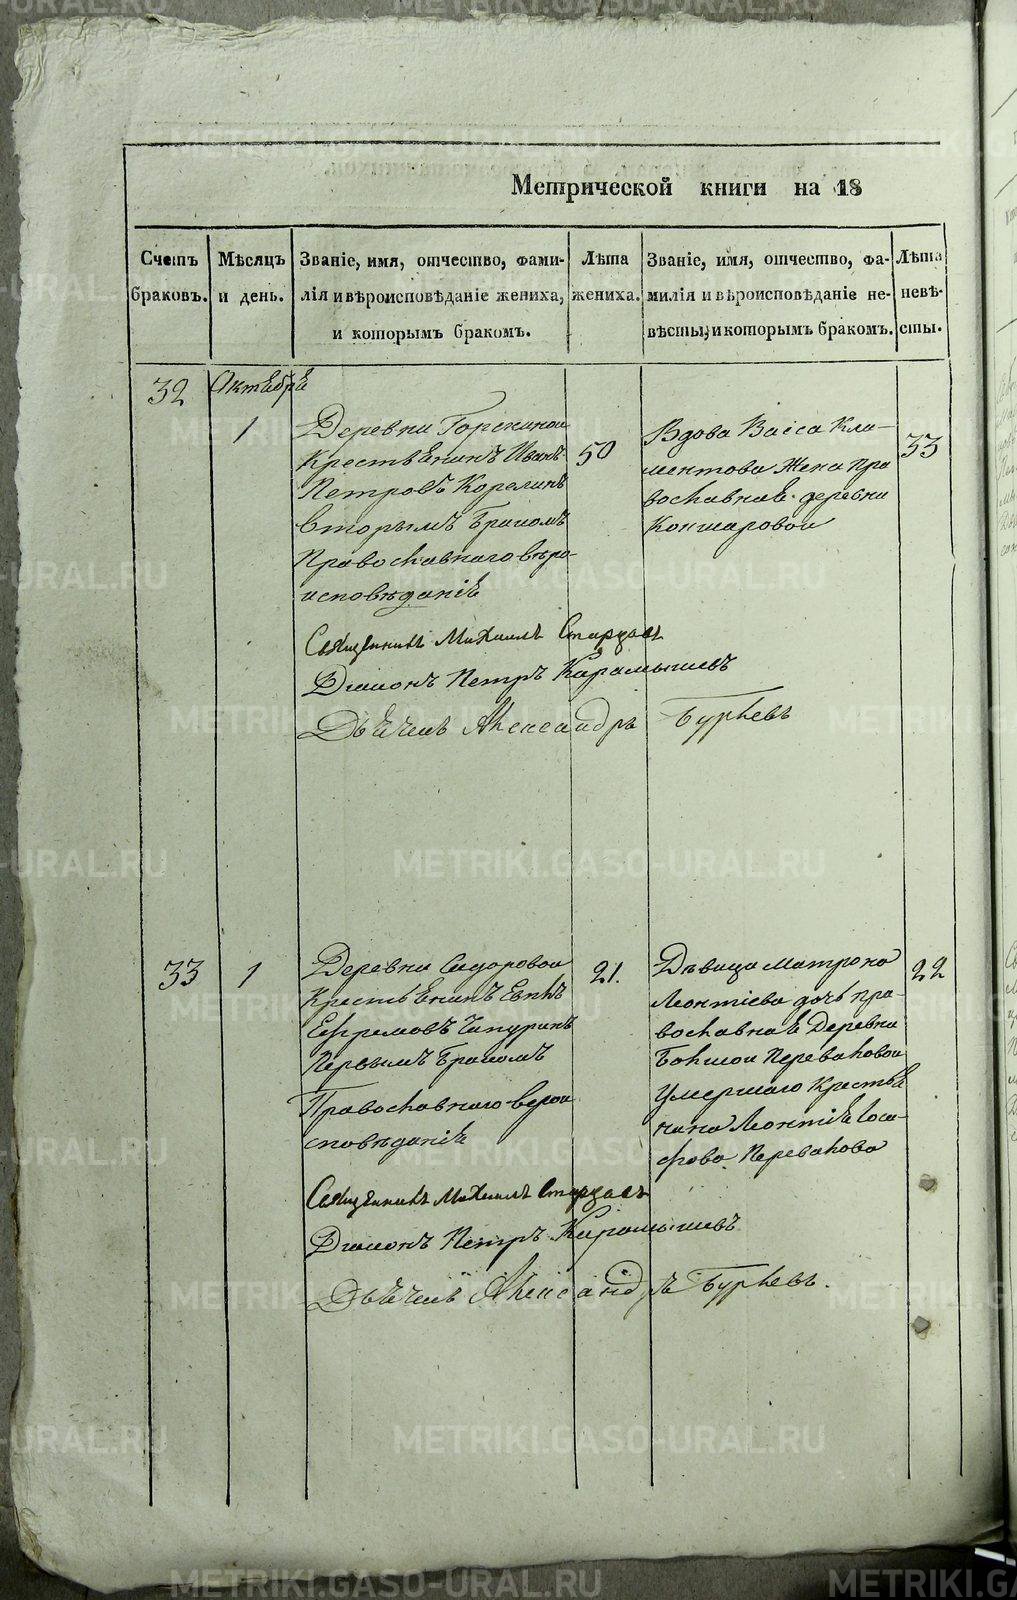 Метрической книги на 18
Счетъ браковъ.
Мѣсяцъ и день.
Званіе, имя, отчество, фами-
лія и вѣроисповѣданіе жениха,
и которымъ бракомъ.
Лѣта
жениха.
Званіе, имя, отчество, фа-
милія и вѣроисповѣданіе не-
вѣсты, и которымъ бракомъ.
Лѣта
невѣ-
сты.
32
Октября
1
Деревни
Крестьянинъ Иванъ
Петровъ Корелинъ
вторымъ бракомъ
Православнаго вѣро
исповѣданія
50
Вдова Васса Кли-
ментова Жена пра
вославная деревни
Коншаровой
33
Священникъ Михаилъ Старцовъ
Діаконъ Петръ Карамышевъ
Дьячекъ Александръ Бурлевъ
33
1
Деревни Сидоровой
Крестьянинъ
Ефремовъ Чипуринъ
Первымъ бракомъ
Православнаго верои
сповѣданія
21.
Дѣвица Матрона
Леонтіева дочь пра-
вославная деревни
Большой Переваловой
умершаго крестья
нина Леонтія Іоса-
фова Перевалова
22
Священникъ Михаилъ Старцовъ
Діаконъ Петръ Карамышевъ
Дьячекъ Александръ Бурлевъ.
METRIKI.GASO-URAL.RU